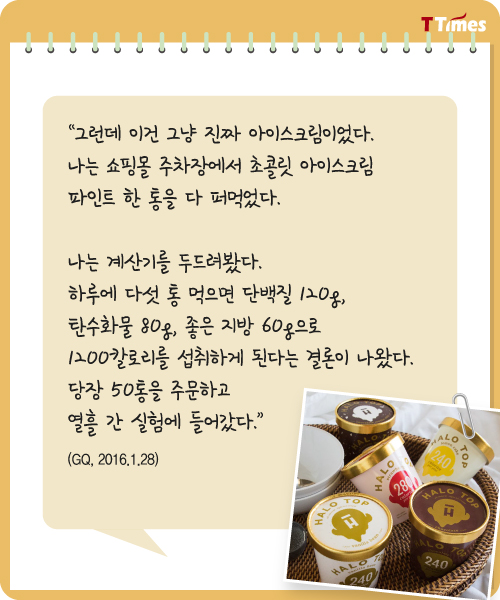 TTimes
“그런데 이건 그냥 진짜 아이스크림이었다.
나는 쇼핑몰 주차장에서 초콜릿 아이스크림
파인트 한 통을 다 퍼먹었다.
나는 계산기를 두드려봤다.
하루에 다섯 통 먹으면 단백질 120g,
탄수화물 80g, 좋은 지방 60g으로
1200칼로리를 섭취하게 된다는 결론이 나왔다.
당장 50통을 주문하고
열흘 간 실험에 들어갔다.”
(GQ, 2016.1.28)
HALO TOP
HALO TOP
240
HALO TOP
280
HALO TOP
240
HALO TOP
240